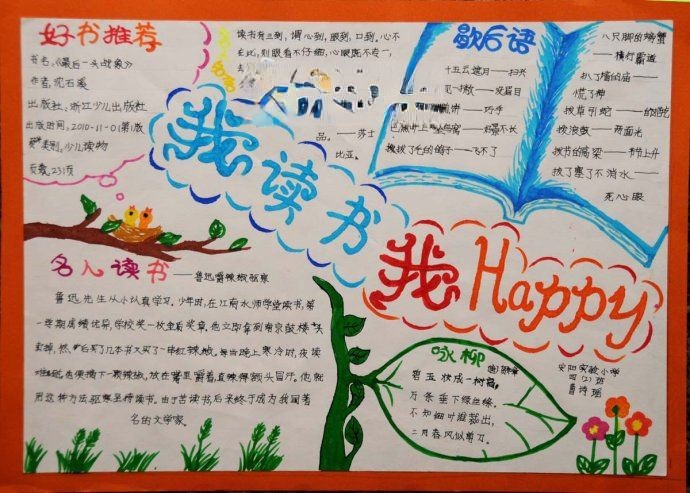 好书推荐
书名：《最后一头战象》
作者：沈石溪
出版社：浙江少儿出版社
出版时间：2010-11-01(第1版
类别：少儿读物
页数：231页
读书有三到，谓心到，眼到，口到。心不
在此，则眼看不仔细，心眼既不专一，
品。——莎士
比亚。
歇后语
十五云遮月——扫兴
——巧手
拔了毛的鸽子——飞不了
八只脚的螃蟹
——横行霸道
扒了墙的庙——
慌了神
拔草引蛇——
拔浪鼓——两面光
拔节的高梁——节节上升
拔了塞了不淌水——
死心眼
我读书
我Happy
名人读书——鲁迅嚼辣椒驱寒
鲁迅先生从小认真学习。少年时，在江南水师学堂读书，第
一学期成绩优异，学校奖一枚金质奖章，他立即拿到南京鼓楼街头
卖掉，然后买了几本书又买了一串红辣椒。每当晚上寒冷时，夜读
难耐，他便摘下一颗辣椒，放在嘴里嚼着，直辣得额头冒汗。他就
用这种方法驱寒坚持读书。由于苦读书后来终于成为我国著
名的文学家。
咏柳
碧玉妆成一树高，
万条垂下绿丝绦。
不知细叶谁裁出，
二月春风似剪刀。
安阳实验小学
四(2)班
曹诗瑶